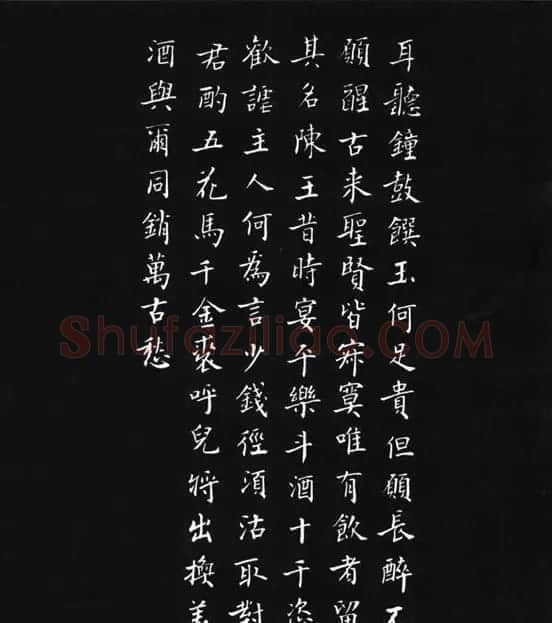 耳聽鐘鼓饌玉何足貴但願長醉不
願醒古来聖賢皆寂寞唯有飲者留
其名陳王昔時宴平樂斗酒十千恣
歡謔主人何為言少錢徑須沽取對
君酌五花馬千金裘呼兒將出換美
酒與爾同銷萬古愁
Shufaziliao.COM